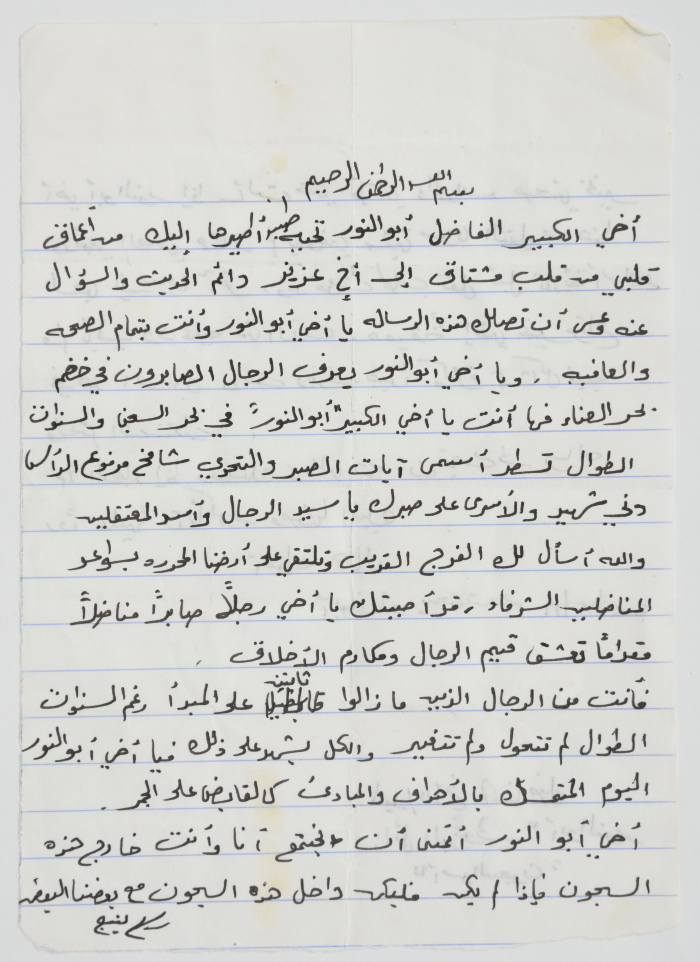 بسم الله الرحمن الرحيم
أخي الكبير الفاضل أبو النور تحية طيبة أطيرها إليك من أعماق
قلبي من قلب مشتاق إلى أخ عزيز دائم الحديث والسؤال
عنه وعسى أن تصلك هذه الرساله يا أخي أبو النور وأنت بتمام الصحه
والعافيه . ويا أخي أبو النور يعرف الرجال الصابرون في خضم
بحر العناء فها أنت يا أخي الكبير "أبو النور" في بحر السجن والسنوات
الطوال تسطر أسمى آيات الصبر والتحدي شامخ مرفوع الرأس
شهيد والأسرى على صبرك يا سيد الرجال وأسد المعتقلين
والله أسأل لك الفرج القريب ونلتقي على أرضنا المحرره بسواعد
المناضلين الشرفاء . قد أحببتك يا أخي رجلاً صابراً مناضلاً
مقداماً تعشق قيم الرجال ومكارم الأخلاق .
فأنت من الرجال الذين ما زالوا ثابتين على المبدأ رغم السنوات
الطوال لم تتحول ولم تتغير والكل يشهد على ذلك فيا أخي أبو النور
اليوم المتمسك بالأهداف والمبادئ كالقابض على الجمر .
أخي أبو النور أتمنى أن نجتمع أنا وأنت خارج هذه
السجون فإذا لم يكن فليكن داخل هذه السجون مع بعضنا البعض
يتبع